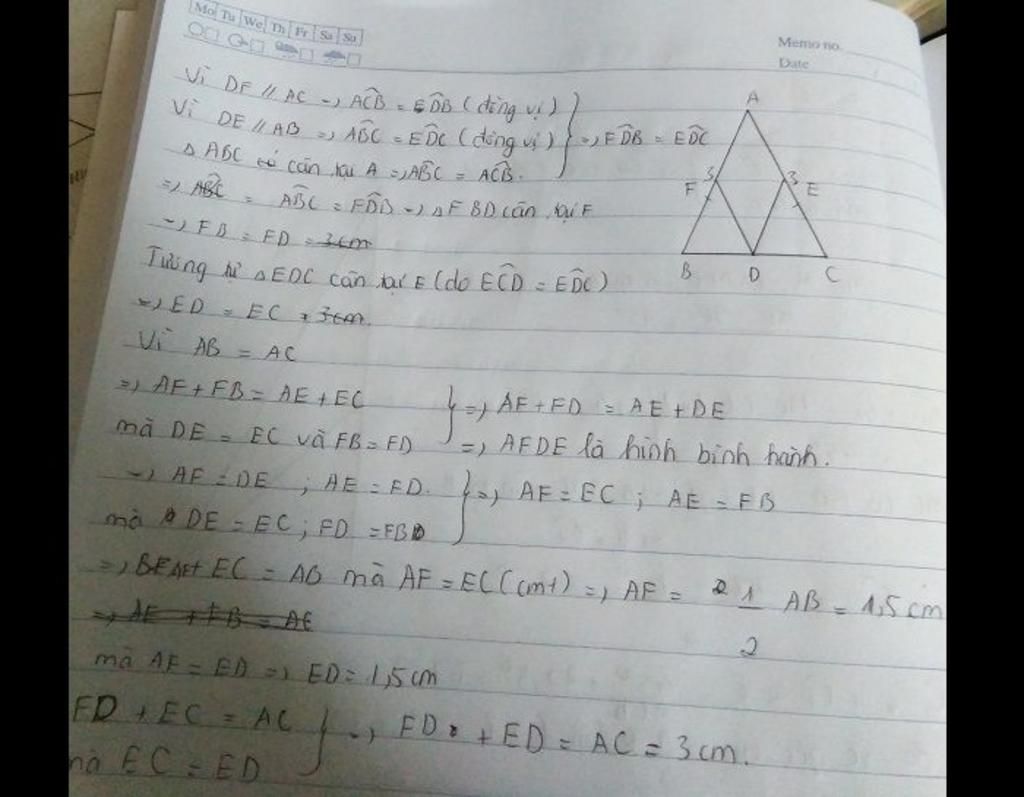 Mo Tu We Th Fr Sa Su
Memo no.
Date
Vì DF // AC => ACB^ = EDB^ (đồng vị)
Vì DE // AB => ABC^ = EDC^ (đồng vị) } => FDB^ = EDC^
Δ ABC cân tại A => ABC^ = ACB^.
=> ABC^ = ABC^ = FDB^ => Δ FBD cân tại F
=> FB = FD = 3cm
Tương tự Δ EDC cân tại E (do ECD^ = EDC^)
=> ED = EC = 3cm.
Vì AB = AC
=> AF + FB = AE + EC } => AF + FD = AE + DE
mà DE = EC và FB = FD => AFDE là hình bình hành.
=> AF = DE ; AE = FD. } => AF = EC ; AE = FB
mà DE = EC ; FD = FB
=> AF + EC = AB mà AF = EC (cmt) => AF = 1/2 AB = 1,5 cm
=> AE + FB = AC
mà AF = ED => ED = 1,5 cm
FD + EC = AC } => FD + ED = AC = 3 cm.
mà EC = ED
A
F 3 3 E
B D C